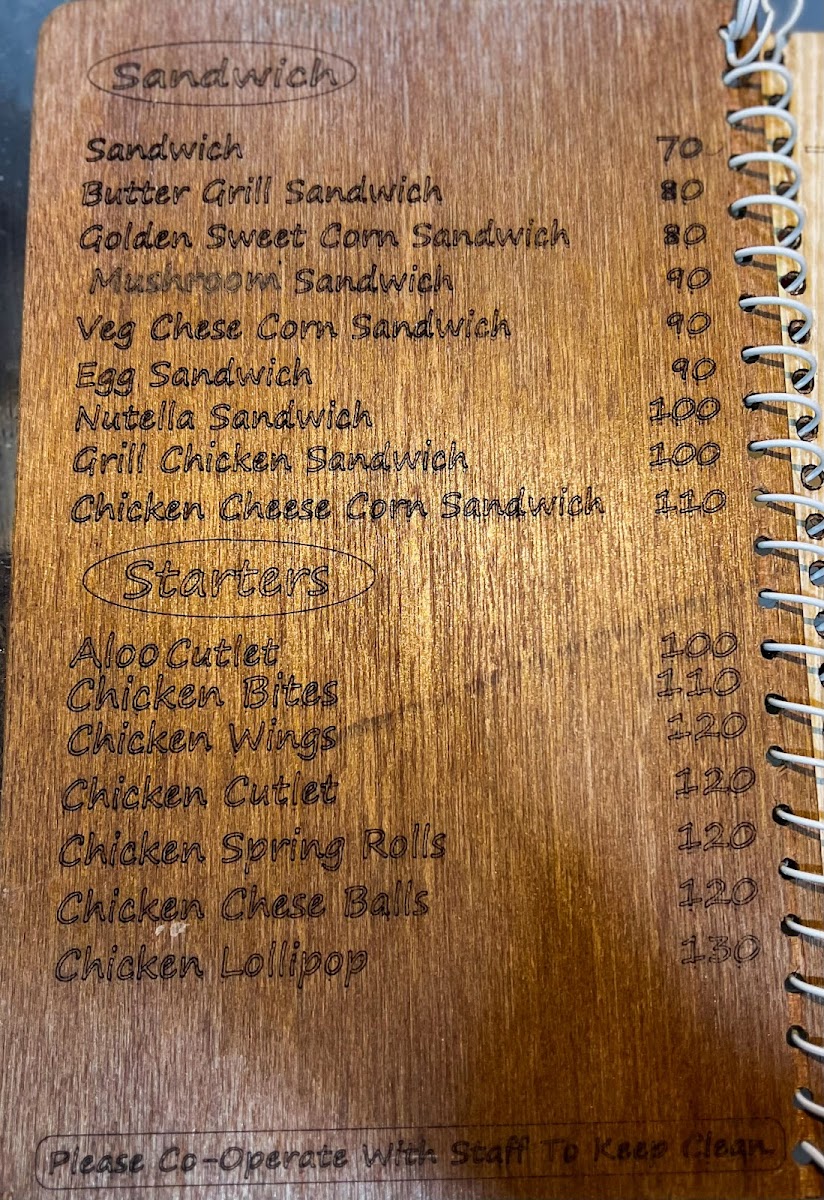 Sandwich
Sandwich 70
Butter Grill Sandwich 80
Golden Sweet Corn Sandwich 80
Mushroom Sandwich 90
Veg Chese Corn Sandwich 90
Egg Sandwich 90
Nutella Sandwich 100
Grill Chicken Sandwich 100
Chicken Cheese Corn Sandwich 110
Starters
Aloo Cutlet 100
Chicken Bites 110
Chicken Wings 120
Chicken Cutlet 120
Chicken Spring Rolls 120
Chicken Chese Balls 120
Chicken Lollipop 130
Please Co-Operate With Staff To Keep Clean